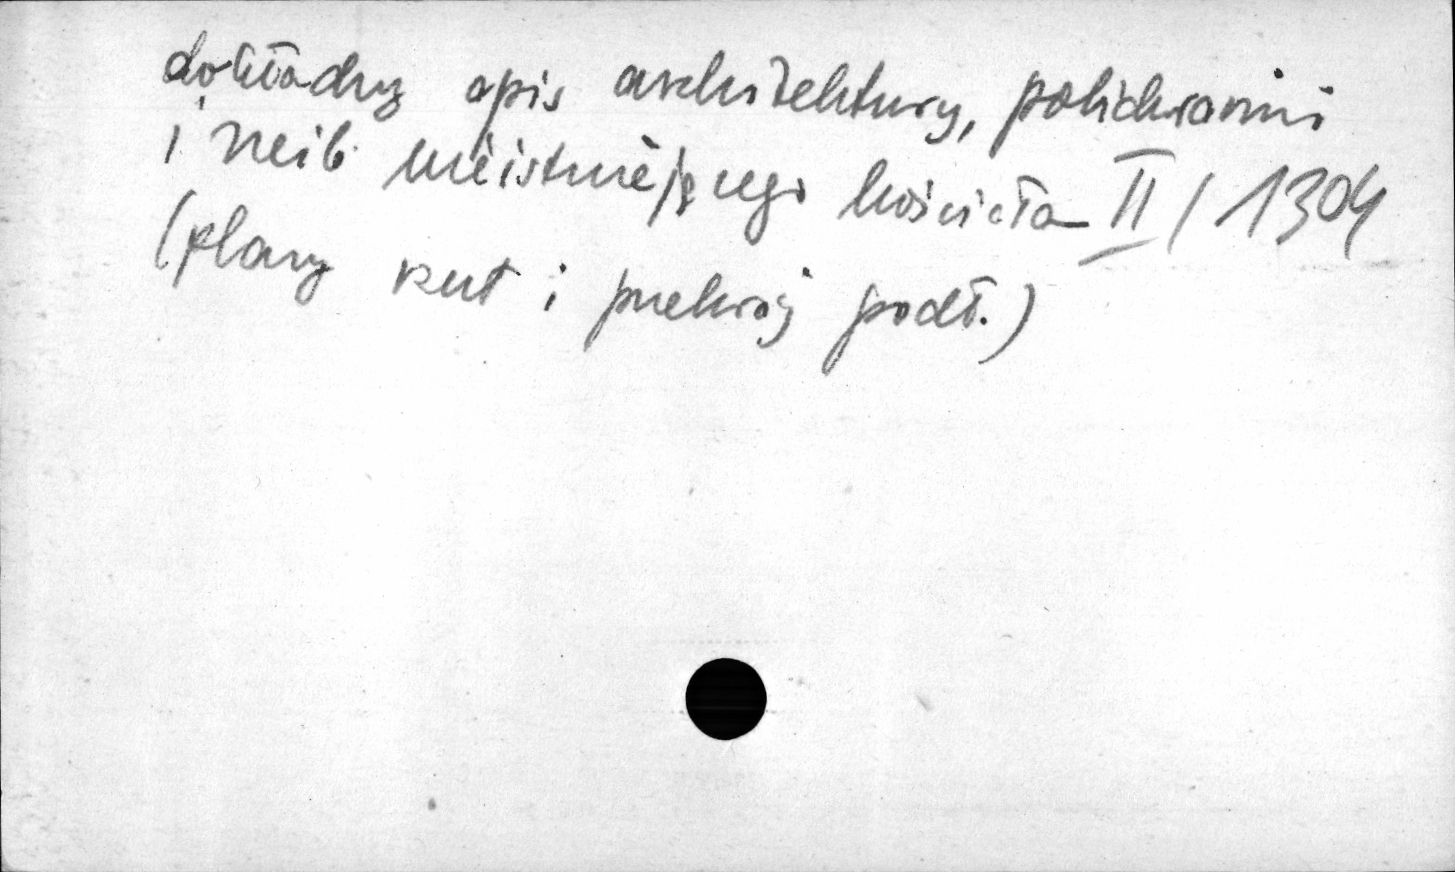 dokładny opis architektury, polichromii
i rzeźb nieistniejącego kościoła II / 1304
(plany rzut i przekrój podł.)